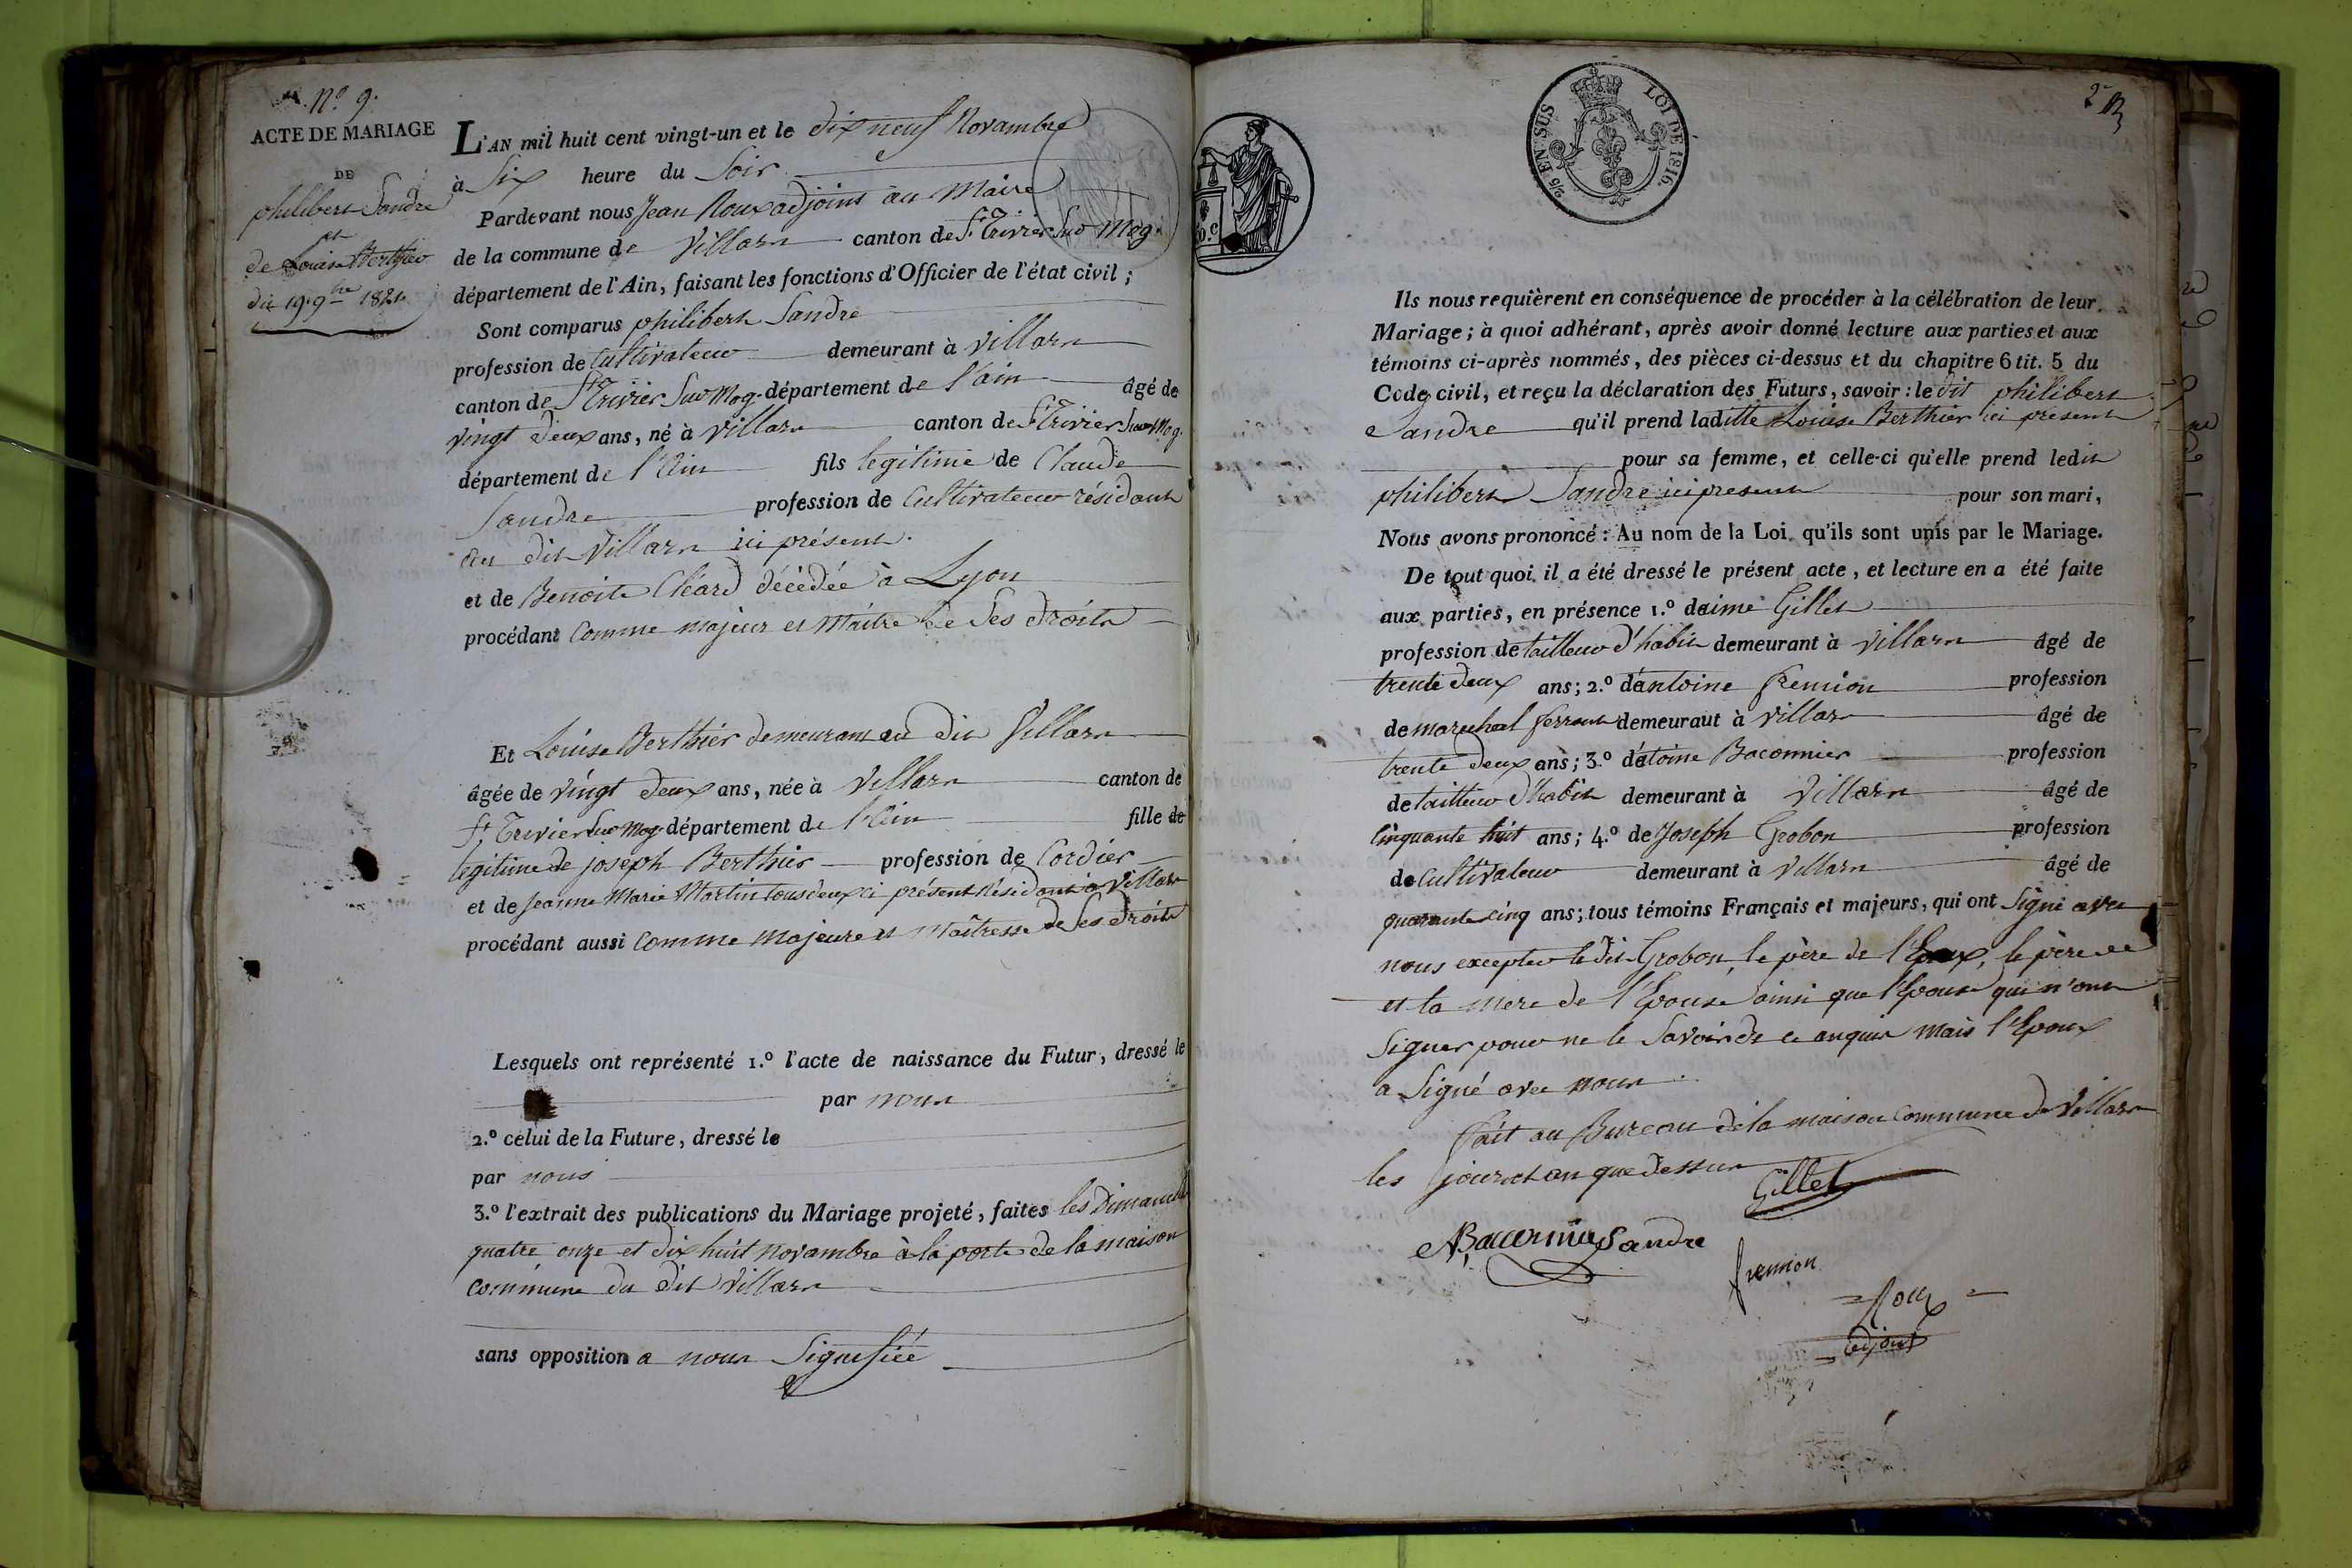 N.º 9.
ACTE DE MARIAGE
DE
philibert Sandre
et
de Louise Berthier
du 19. 9bre 1821.
L'AN mil huit cent vingt-un et le dix neuf Novambre
à Six heure du Soir
Pardevant nous Jean Roux adjoint au Maire
de la commune de Villars canton de St Trivier Sur Mog.
département de l'Ain, faisant les fonctions d'Officier de l'état civil ;
Sont comparus philibert Sandre
profession de Cultivateur demeurant à Villars
canton de St Trivier Sur Mog. département de l'ain âgé de
vingt deux ans, né à Villars canton de St Trivier Sur Mog.
département de l'Ain fils legitime de Claude
Sandre profession de Cultivateur résidant
au dit Villars ici présent.
et de Benoite Cléard décédée à Lyon
procédant Comme majeur et Maitre de Ses droits
Et Louise Berthier demeurant au dit Villars
âgée de vingt deux ans, née à Villars canton de
St Trivier Sur Mog. département de l'Ain fille de
legitime de joseph Berthier profession de Cordier
et de Jeanne Marie Martin tous deux ci présent Résidant à Villars
procédant aussi Comme Majeure et Maîtresse de Ses droits
Lesquels ont représenté 1.º l'acte de naissance du Futur, dressé le
par nous
2.º celui de la Future, dressé le
par nous
3.º l'extrait des publications du Mariage projeté, faites les Dimanche
quatre onze et dix huit Novambre à la porte de la maison
Commune du dit Villars
sans opposition a nous Signifiée
2/5 EN SUS LOI DE 1816.
Ils nous requièrent en conséquence de procéder à la célébration de leur
Mariage ; à quoi adhérant, après avoir donné lecture aux parties et aux
témoins ci-après nommés, des pièces ci-dessus et du chapitre 6 tit. 5 du
Code civil, et reçu la déclaration des Futurs, savoir : le dit philibert
Sandre qu'il prend laditte Louise Berthier ici present
pour sa femme, et celle-ci qu'elle prend ledit
philibert Sandre ici present pour son mari,
Nous avons prononcé : Au nom de la Loi qu'ils sont unis par le Mariage.
De tout quoi il a été dressé le présent acte, et lecture en a été faite
aux parties, en présence 1.º daimé Gillet
profession de tailleur d'habit demeurant à Villars âgé de
trente deux ans ; 2.º d'antoine fremion profession
de marechal ferrant demeuraut à Villars âgé de
trente deux ans ; 3.º d'atoine Baconnier profession
de tailleur d'habit demeurant à Villars âgé de
Cinquante huit ans ; 4.º de Joseph Grobon profession
de Cultivateur demeurant à Villars âgé de
quarante cinq ans ; tous témoins Français et majeurs, qui ont Signé avec
nous excepter le dit Grobon, le père de l'Epoux, le père
et la mere de l'Epouse ainsi que l'Epouse qui n'ont
Signer pour ne le Savoir de ce enquis mais l'Epoux
a Signé avec nous
fait au Bureau de la maison Commune de Villars
les jour et an que dessus
Gillet
ABaconnier Sandre
fremion
Roux
adjoint